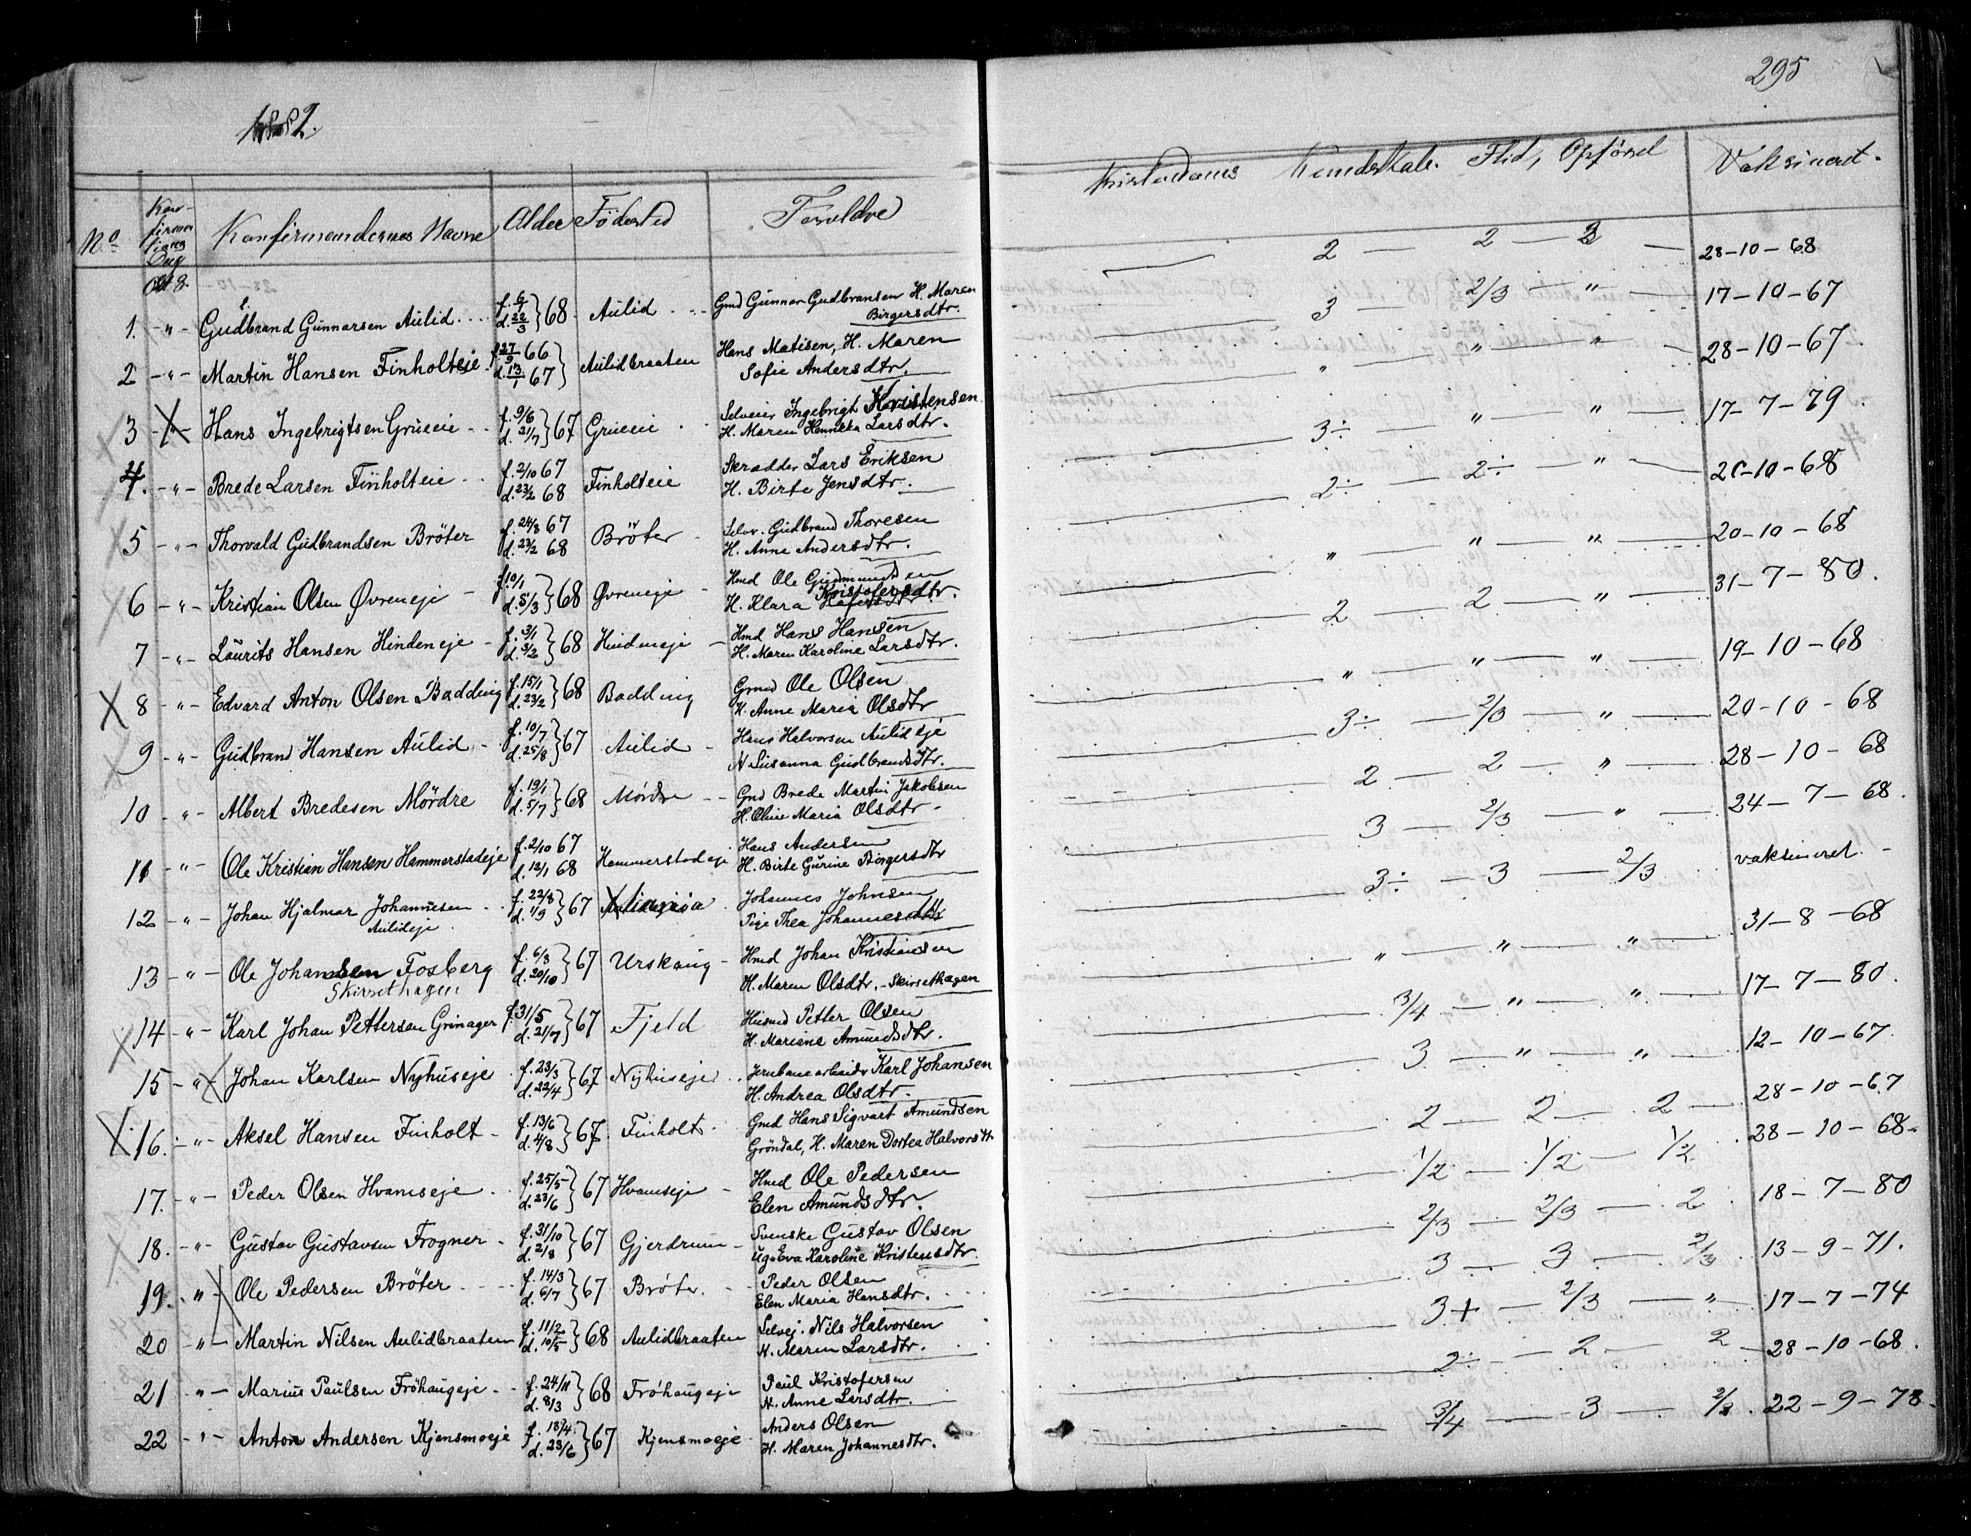 1882.
295
No Konfirmendernes Navne Alder Födested Foreldre
Kristendoms Kundskab. Flid, Opförsel Vaksineret.
Okt 8.
1. -"- Gudbrand Gunnarsen Aulid f. 6/1 d. 22/3 } 68 Aulid Gmd Gunnar Gudbransen H. Maren Birgersdtr. 2 — 2 — 28-10-68
2 -"- Martin Hansen Finholteie f. 27/9 66 d. 13/1 67 } Aulidbraaten Hans Matisen, H. Maren Sofie Andersdtr. 3 — 2/3 — " — 17-10-67
3 Hans Ingebrigtsen Grueeie f. 9/6 d. 21/7 } 67 Grueeie Selveier Ingebrigt Kristensen H. Maren Henrikka Larsdtr. " — " — " — 28-10-67.
4. -"- Brede Larsen Finholteie f. 2/10 67 d. 23/2 68 Finholteie Skradder Lars Eriksen H. Birte Jensdtr. 3÷ — " — " — 17-7-79.
5 -"- Thorvald Gudbrandsen Bröter f. 24/8 67 d. 23/2 68 Bröter Selv. Gudbrand Thoresen H. Anne Andersdtr. 2÷ — 2÷ — " — 20-10-68
6 -"- Kristian Olsen Øvreneje f. 10/1 d. 5/3 } 68 Øvreneje Hmd Ole Gudmundsen H. Klara Kristofersdtr. " — " — " — 20-10-68
7 -"- Laurits Hansen Hindeneje f. 3/1 d. 3/2 } 68 Hindeneje Hmd Hans Hansen H. Maren Karoline Larsdtr. 2 — 2 — " — 31-7-80.
8 -"- Edvard Anton Olsen Badding f. 15/1 d. 23/2 } 68 Badding Gmd Ole Olsen H. Anne Maria Olsdtr " — " — " — 19-10-68
9 -"- Gudbrand Hansen Aulid f. 10/7 d. 25/8 } 67 Aulid Hans Halvorsen Aulideje H Susanna Gudbrandsdtr. 3÷ — 2/3 — " — 20-10-68
10 -"- Albert Bredesen Mördre f. 19/1 d. 5/7 } 68 Mördre Gmd Brede Martin Jakobsen H. Oline Maria Olsdtr 2 — 2 — " — 28-10-68
11 -"- Ole Kristian Hansen Hammerstadeje f. 2/10 67 d. 12/1 68 Hammerstadeje Hans Andersen H. Birte Gurine Birgersdtr 3 — 2/3 — " — 24-7-68.
12 -"- Johan Hjalmar Johannesen Aulideje f. 22/8 d. 1/9 } 67 Johannes Johnsen Pige Thea Johannesdtr 3÷ — 3 — 2/3 vaksineret.
13 -"- Ole Johansen Fosberg Skirsethagen f. 6/3 d. 20/10 } 67 Urskoug Hmd Johan Kristiansen H. Maren Olsdtr. - Skirsethagen " — " — " — 31-8-68
14 -"- Karl Johan Pettersen Grinager f. 31/5 d. 21/7 } 67 Fjeld Husmd Petter Olsen H. Mariane Amundsdtr. 3/4 — " — " — 17-7-80.
15 -"- Johan Karlsen Nyhuseje f. 23/3 d. 22/4 } 67 Nyhuseje Jernbanearbeider Karl Johansen H. Andrea Olsdtr. 3 — " — " — 12-10-67.
16. -"- Aksel Hansen Finholt f. 13/6 d. 4/8 } 67. Finholt Gmd Hans Sigvart Amundsen Gröndal, H. Maren Dortea Halvorsdtr 2 — 2 — 2 — 28-10-67
17. -"- Peder Olsen Hvamseje f. 25/5 d. 23/6 } 67 Hvamseje Hmd Ole Pedersen Elen Amundsdtr. 1/2 — 1/2 — 1/2 28-10-68.
18. -"- Gustav Gustavsen Frogner f. 31/10 d. 2/8 } 67 Gjerdrum Svenske Gustav Olsen Ugs Eva Karoline Kristensdtr. 2/3 — 2/3 — 2 18-7-80
19. -"- Ole Pedersen Bröter f. 14/3 d. 6/7 } 67 Bröter. Peder Olsen Elen Maria Hansdtr. 3 — 3 — 2/3 13-9-71.
20 -"- Martin Nilsen Aulidbraaten f. 11/2 d. 10/5 } 68 Aulidbraaten Selvej. Nils Halvorsen H. Maren Larsdtr. 3+ — 2/3 — " 17-7-74
21 -"- Marius Paulsen Fröhaugeje f. 24/11 d. 8/3 } 68 Fröhaugeje Paul Kristofersen H. Anne Larsdtr. 2÷ — 2 — 2 28-10-68.
22 -"- Anton Andersen Kjensmoeje f. 18/4. d. 23/6 } 67 Kjensmoeje Anders Olsen H. Maren Johannesdtr. 3/4 — 3 — 2/3. 22-9-78.